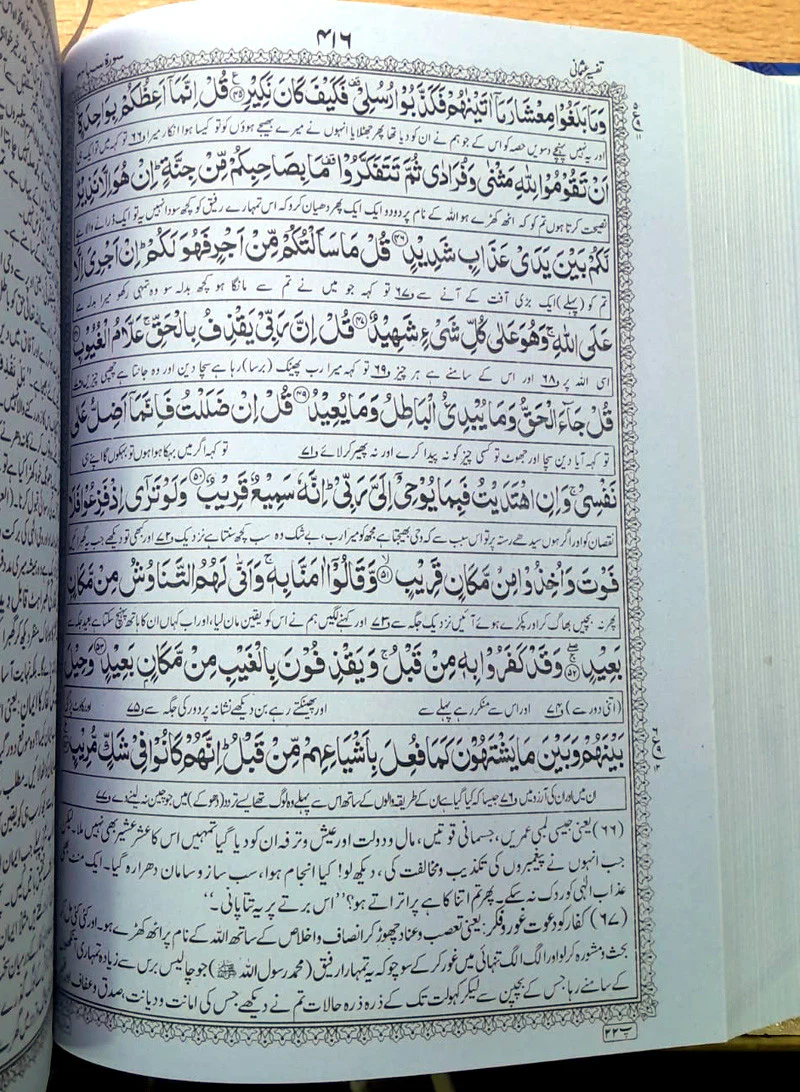 تفسیر عثمانی
۴۱۶
سورۃ سبا ۳۴
وَمَا بَلَغُوْا مِعْشَارَ مَاۤ اٰتَيْنٰهُمْ فَكَذَّبُوْا رُسُلِيْ ۫ فَكَيْفَ كَانَ نَكِيْرِ ۝۴۵ قُلْ اِنَّمَاۤ اَعِظُكُمْ بِوَاحِدَةٍ
اور یہ نہیں پہنچے دسویں حصہ کو اس کے جو ہم نے ان کو دیا تھا پھر جھٹلایا انہوں نے میرے بھیجے ہوؤں کو تو کیسا ہوا انکار میرا ف۶۶ تو کہہ میں تو ایک ہی
اَنْ تَقُوْمُوْا لِلّٰهِ مَثْنٰى وَفُرَادٰى ثُمَّ تَتَفَكَّرُوْا ۫ مَا بِصَاحِبِكُمْ مِّنْ جِنَّةٍ ؕ اِنْ هُوَ اِلَّا نَذِيْرٌ
نصیحت کرتا ہوں تم کو کہ اٹھ کھڑے ہو اللہ کے نام پر دو دو ایک ایک پھر دھیان کرو کہ اس تمہارے رفیق کو کچھ سودا نہیں یہ تو ایک ڈرانے والا ہے
لَّكُمْ بَيْنَ يَدَيْ عَذَابٍ شَدِيْدٍ ۝۴۶ قُلْ مَا سَاَلْتُكُمْ مِّنْ اَجْرٍ فَهُوَ لَكُمْ ؕ اِنْ اَجْرِيَ اِلَّا
تم کو (پہلے) ایک بڑی آفت کے آنے سے ف۶۷ تو کہہ جو میں نے تم سے مانگا ہو کچھ بدلہ سو وہ تمہی رکھو میرا بدلہ ہے
عَلَى اللّٰهِ ۚ وَهُوَ عَلٰى كُلِّ شَيْءٍ شَهِيْدٌ ۝۴۷ قُلْ اِنَّ رَبِّيْ يَقْذِفُ بِالْحَقِّ ۚ عَلَّامُ الْغُيُوْبِ ۝۴۸
اسی اللہ پر ف۶۸ اور اس کے سامنے ہے ہر چیز ف۶۹ تو کہہ میرا رب پھینک (برسا) رہا ہے سچا دین اور وہ جانتا ہے چھپی چیزیں
قُلْ جَآءَ الْحَقُّ وَمَا يُبْدِئُ الْبَاطِلُ وَمَا يُعِيْدُ ۝۴۹ قُلْ اِنْ ضَلَلْتُ فَاِنَّمَاۤ اَضِلُّ عَلٰى
تو کہہ آیا دین سچا اور جھوٹ تو کسی چیز کو نہ پیدا کرے اور نہ پھیر کر لائے ف۷۱ تو کہہ اگر میں بہکا ہوا ہوں تو بہکوں گا اپنے ہی
نَفْسِيْ ۚ وَاِنِ اهْتَدَيْتُ فَبِمَا يُوْحِيْۤ اِلَيَّ رَبِّيْ ؕ اِنَّهٗ سَمِيْعٌ قَرِيْبٌ ۝۵۰ وَلَوْ تَرٰۤى اِذْ فَزِعُوْا فَلَا
نقصان کو اور اگر ہوں سیدھے رستہ پر تو اس سبب سے کہ وحی بھیجتا ہے مجھ کو میرا رب، بے شک وہ سب کچھ سنتا ہے نزدیک ف۷۲ اور کبھی تو دیکھے جب یہ
فَوْتَ وَاُخِذُوْا مِنْ مَّكَانٍ قَرِيْبٍ ۝۵۱ وَّقَالُوْۤا اٰمَنَّا بِهٖ ۚ وَاَنّٰى لَهُمُ التَّنَاوُشُ مِنْ مَّكَانٍ
پھر نہ بچیں بھاگ کر اور پکڑے ہوئے آئیں نزدیک جگہ سے ف۷۳ اور کہنے لگیں ہم نے اس کو یقین مان لیا، اور اب کہاں ان کا ہاتھ پہنچ سکتا ہے بعید جگہ سے
بَعِيْدٍ ۝۵۲ وَّقَدْ كَفَرُوْا بِهٖ مِنْ قَبْلُ ۚ وَيَقْذِفُوْنَ بِالْغَيْبِ مِنْ مَّكَانٍۭ بَعِيْدٍ ۝۵۳ وَحِيْلَ
(اتنی دور سے) ف۷۴ اور اس سے منکر رہے پہلے سے اور پھینکتے رہے بن دیکھے نشانہ پر دور کی جگہ سے ف۷۵
بَيْنَهُمْ وَبَيْنَ مَا يَشْتَهُوْنَ كَمَا فُعِلَ بِاَشْيَاعِهِمْ مِّنْ قَبْلُ ؕ اِنَّهُمْ كَانُوْا فِيْ شَكٍّ مُّرِيْبٍ ۝۵۴
ان میں اور ان کی آرزو میں ف۷۶ جیسا کہ کیا گیا ہے ان کے طریقہ والوں کے ساتھ اس سے پہلے وہ لوگ تھے ایسے تردد (دھوکے) میں جو چین نہ لینے دے ف۷۷
(۶۶) یعنی جیسی لمبی عمریں، جسمانی قوتیں، مال و دولت اور عیش و ترفہ ان کو دیا گیا تمہیں اس کا عشر عشیر بھی نہیں ملا۔ لیکن
جب انہوں نے پیغمبروں کی تکذیب و مخالفت کی، دیکھ لو! کیا انجام ہوا، سب ساز و سامان دھرا رہ گیا۔ ایک منٹ بھی
عذاب الٰہی کو روک نہ سکے۔ پھر تم اتنا کاہے پر اتراتے ہو؟ ”اس برتے پر یہ تتا پانی۔“
(۶۷) کفار کو دعوت غور و فکر: یعنی تعصب و عناد چھوڑ کر انصاف و اخلاص کے ساتھ اللہ کے نام پر اٹھ کھڑے ہو۔ اور کئی کئی مل کر
بحث و مشورہ کر لو اور الگ الگ تنہائی میں غور کر کے سوچو کہ یہ تمہارا رفیق (محمد رسول اللہ ﷺ) جو چالیس برس سے زیادہ تمہاری آنکھوں
کے سامنے رہا جس کے بچپن سے لیکر کہولت تک کے ذرہ ذرہ حالات تم نے دیکھے جس کی امانت و دیانت، صدق و عفاف اور
پ۲۲